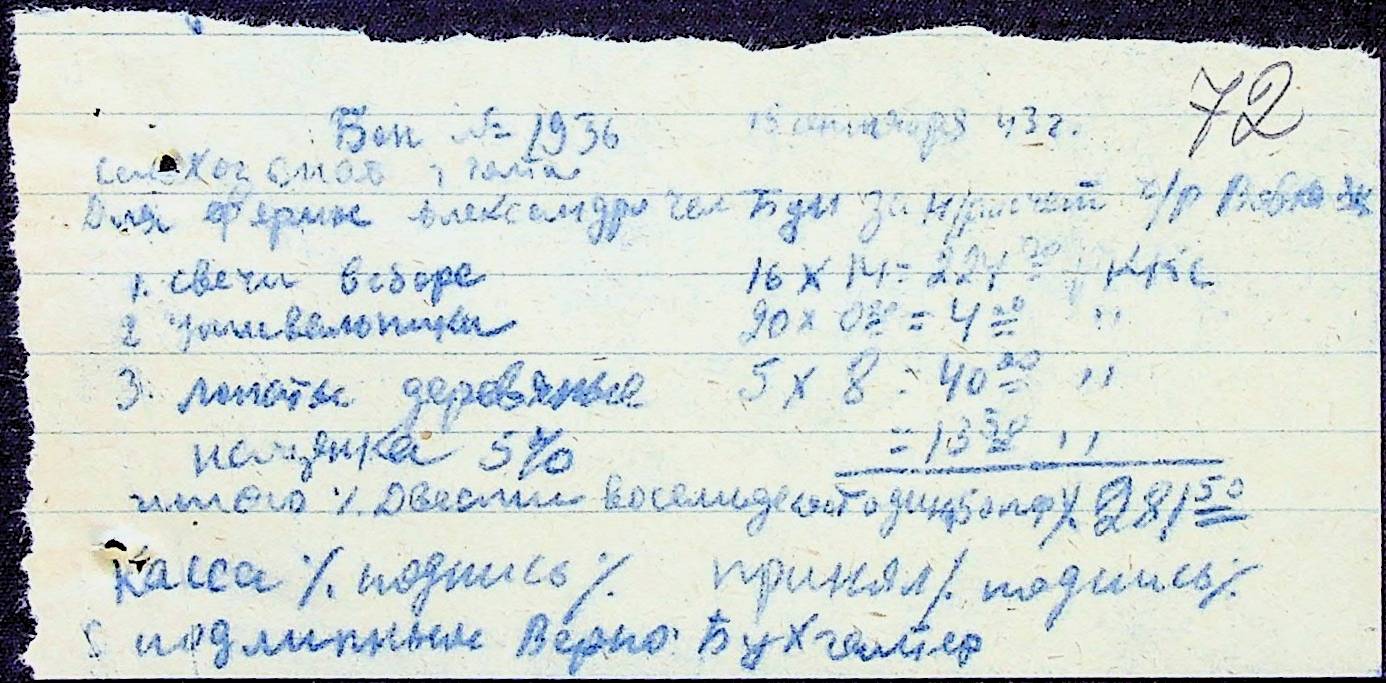 72
Бон № 1936 15 сентября 43 г.
сельхоз снаб
Для Ферин Александр за р/р
1. свечи в сборе 16 х 14 = 224 00 ККС
2 20 х 0 20 = 4 00 "
3. лопаты деревяные 5 х 8 = 40 00 "
наценка 5% = 13 50 "
итого /. Двести восемьдесят один 50 пф /. 281 50
Касса /. подпись /. принял /. подпись /.
С подлинным Верно: Бухгалтер